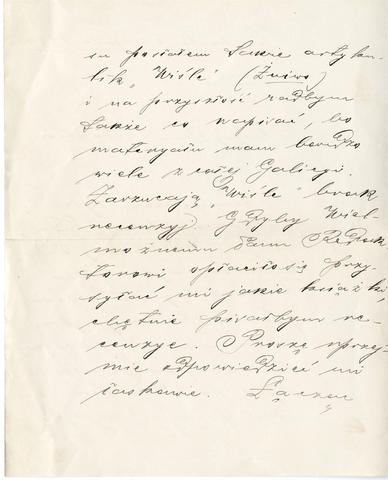 su posłałem także artyku-
lik „Wiśle" (Żniwo)
i na przyszłość radbym
także co napisać, bo
materyału mam bardzo
wiele z całej Galicyi.
Zarzucają „Wiśle" brak
recenzyj. Gdyby Wiel-
możnemu Panu Redak-
torowi opłaciło się przy-
syłać mi jakie książki
chętnie pisałbym re-
cenzye. Proszę uprzej-
mie odpowiedzieć mi
łaskawie. Łączę